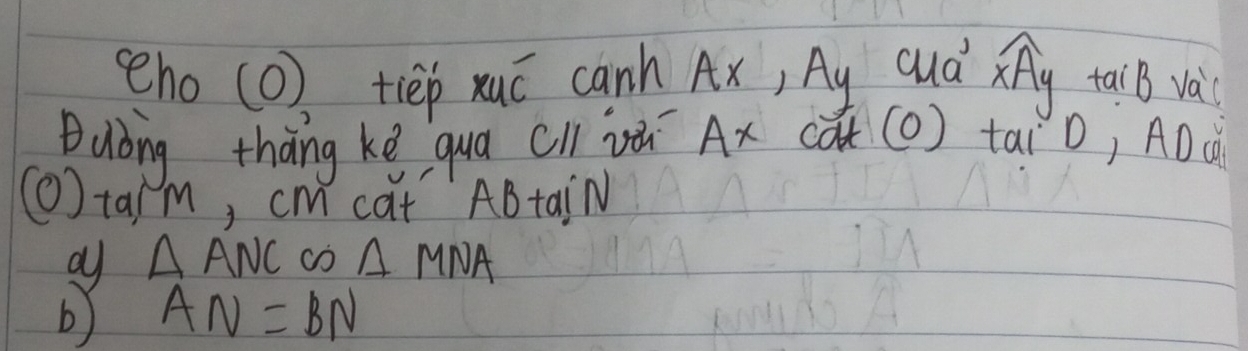 Cho (O) tiếp xúc cạnh Ax, Ay của xAy tại B và C
Đường thẳng kẻ qua C // với Ax cắt (O) tại D, AD cắt
(O) tại M, CM cắt AB tại N
a) Δ ANC ∽ Δ MNA
b) AN = BN